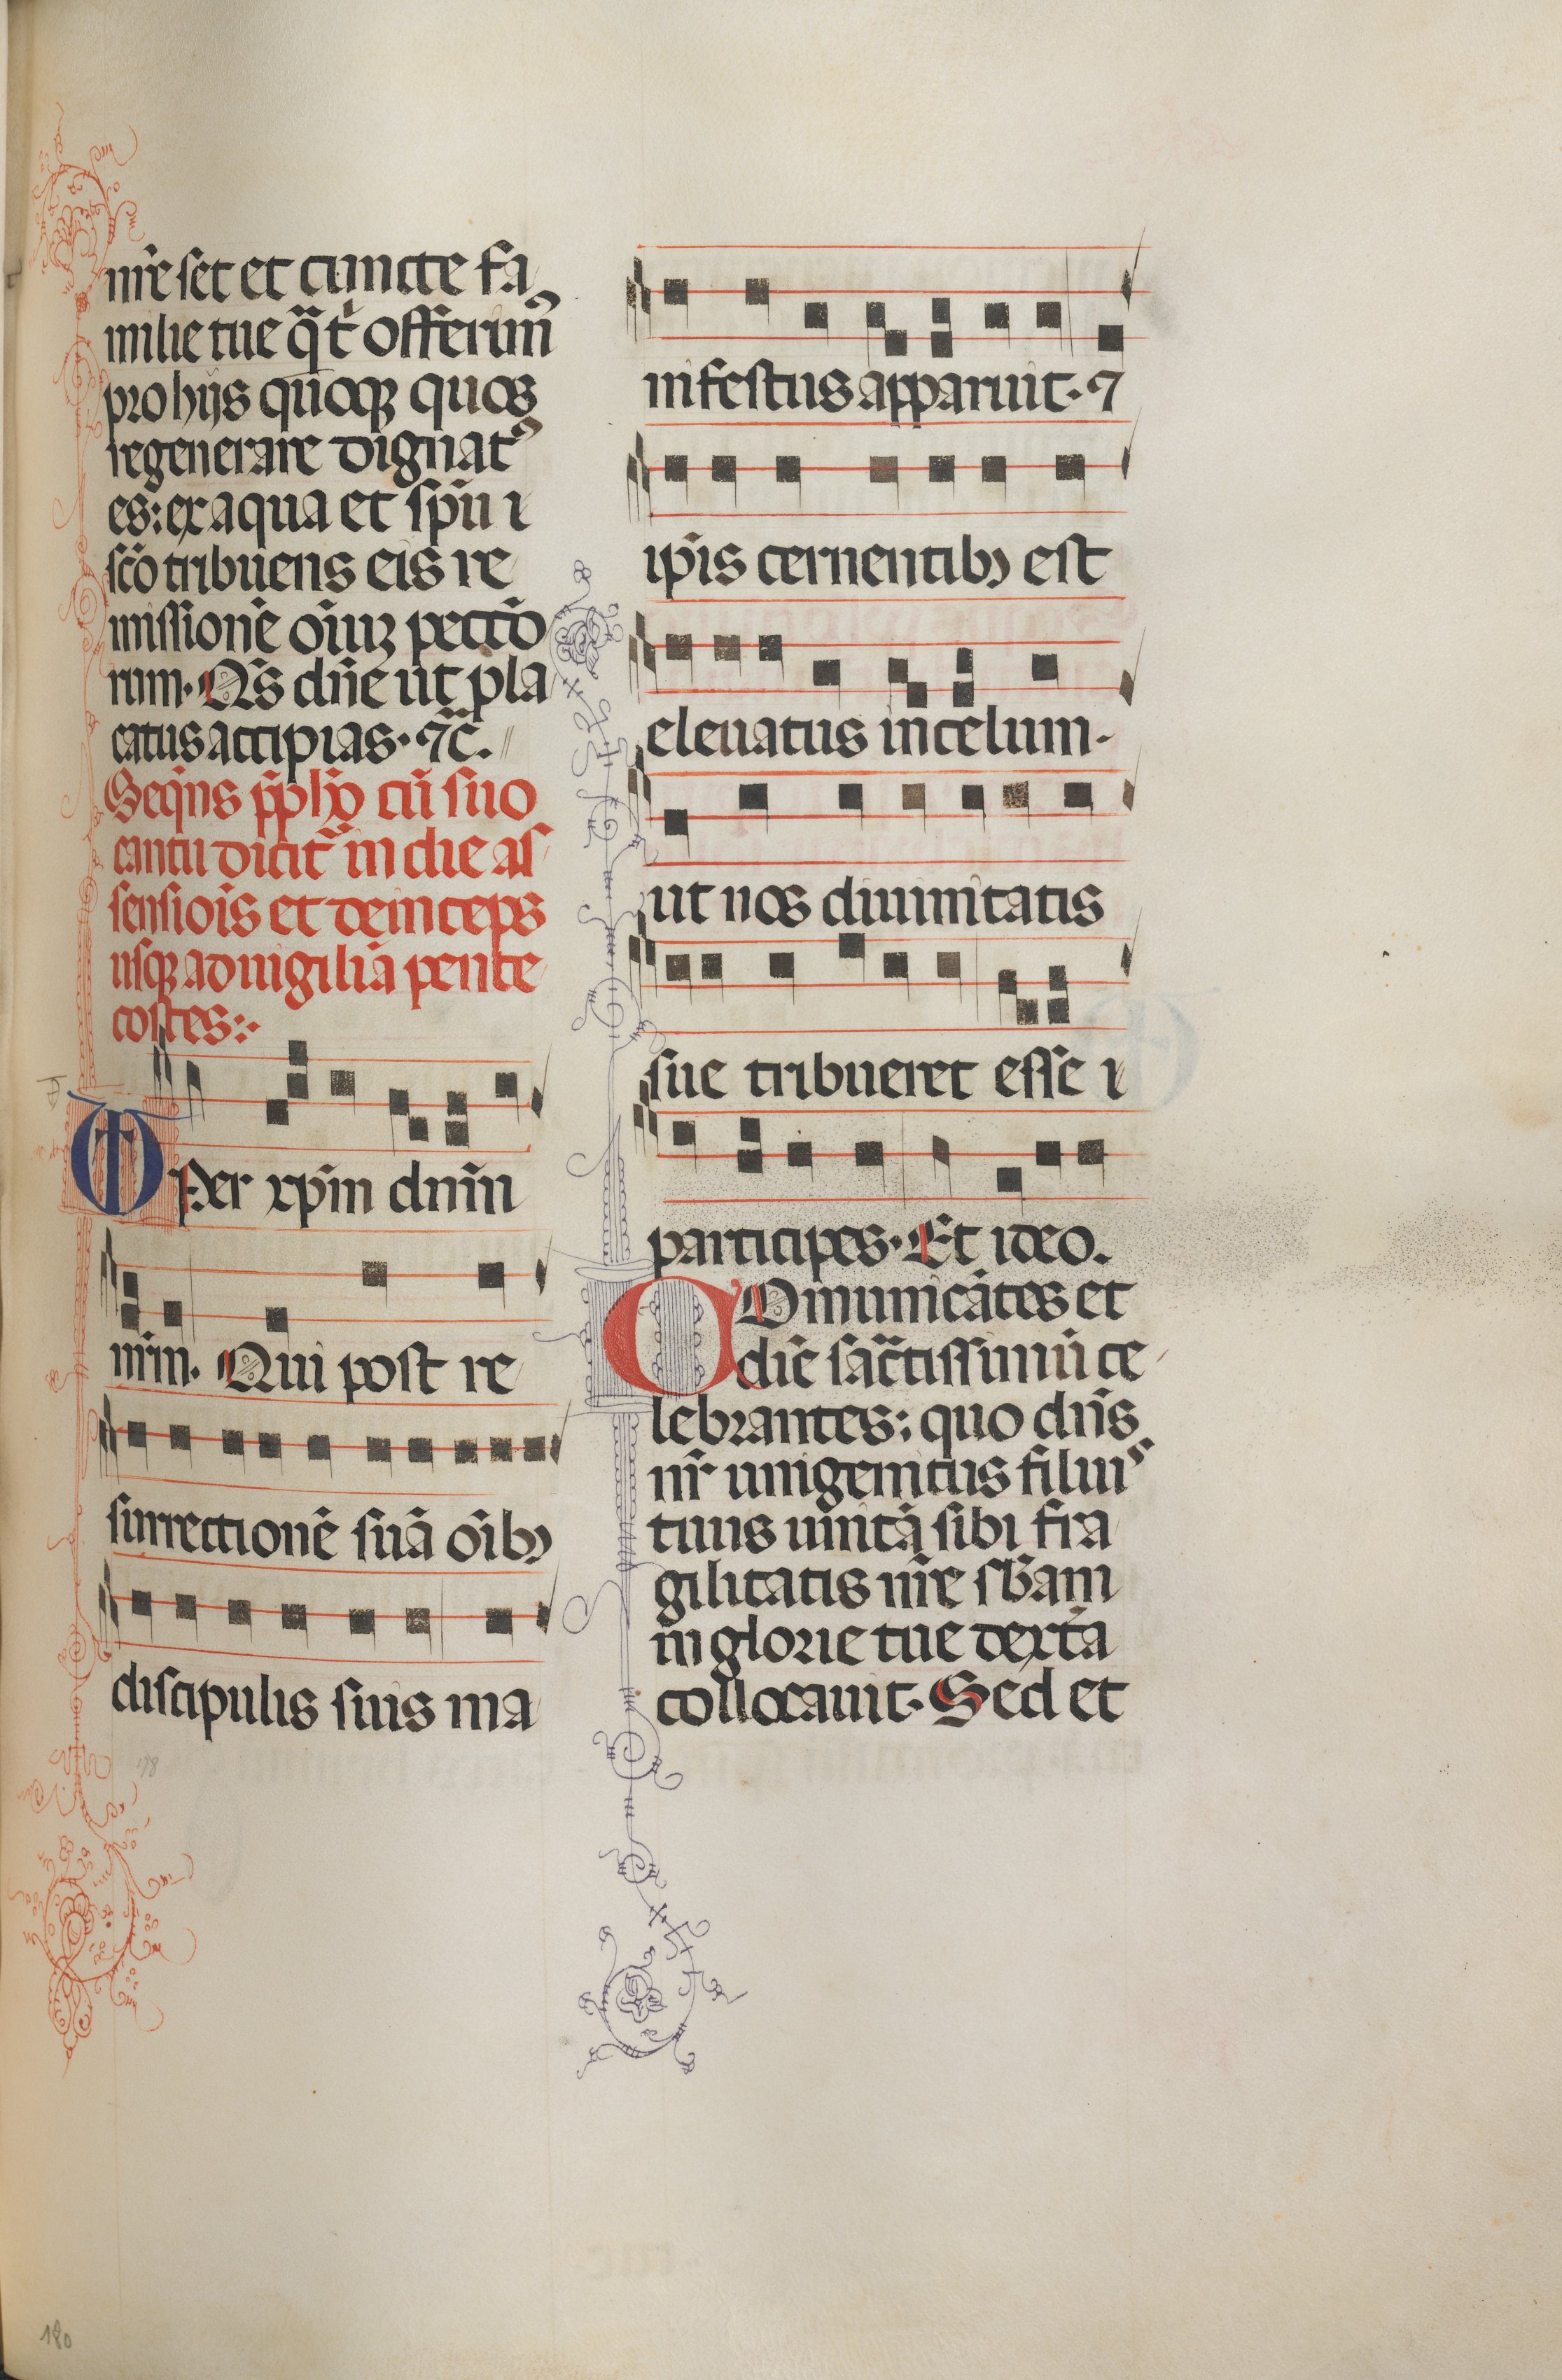 nr̄e set et cuncte fa
milie tue q̄̄t offerim⁹
pro hijs quoqꝫ quos
regenerare dignat⁹
es: ex aqua et sp̄u ı
sc̄o tribuens eis re
missionē oīuꝫ pecc̄o
rum. Q̄s dn̄e ut pla
catus accipias. ⁊c̄.
Seq̄ns p̄phō cū suo
cantu dicit̄ in die as
sensiōis et deinceps
usqꝫ ad uigiliā pente
costes:
Per xp̄m dnm̄
nr̄m. Qui post re
surrectionē suā oīb⁹
discipulis suis ma
nifestus apparuit. ⁊
ip̄is cernentib⁹ est
eleuatus in celum.
ut nos diuinitatis
sue tribueret esse ı
participes. Et ideo.
COmunicātes et
diē sac̄tissimū ce
lebrantes: quo dn̄s
nr̄ unigenitus filius
tuus unitā sibi fra
gilitatis nr̄e sb̄am
in glorie tue dext̄a
collocauit. Sed et
178
180